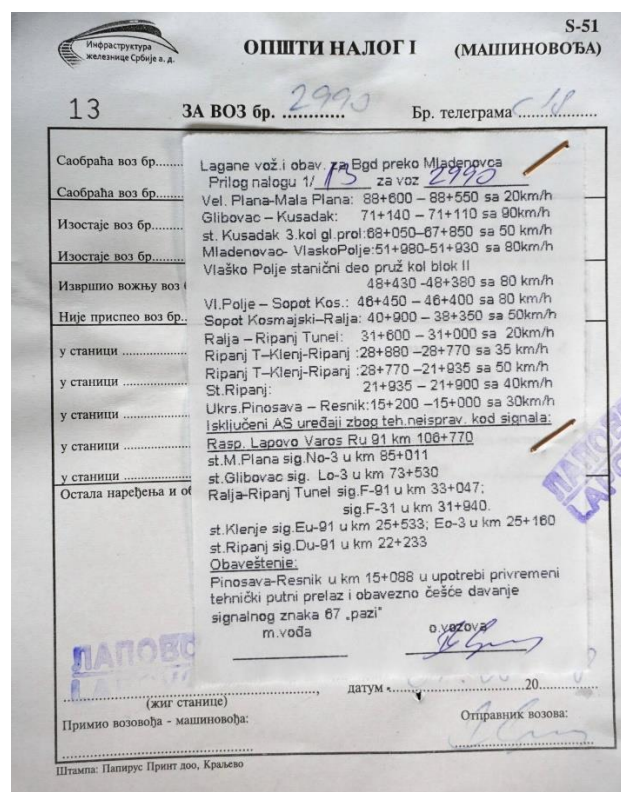 Инфраструктура
железнице Србије а. д.
S-51
ОПШТИ НАЛОГ I (МАШИНОВОЂА)
13 ЗА ВОЗ бр. 2990 Бр. телеграма
Саобраћа воз бр.....
Саобраћа воз бр.....
Изостаје воз бр.....
Изостаје воз бр.....
Извршио вожњу воз
Није приспео воз бр..
у станици
у станици
у станици
у станици
у станици
Остала наређења и об
Lagane vož.i obav. za Bgd preko Mladenovca
Prilog nalogu 1/ 13 za voz 2990
Vel. Plana-Mala Plana: 88+600 – 88+550 sa 20km/h
Glibovac – Kusadak: 71+140 – 71+110 sa 90km/h
st. Kusadak 3.kol gl.prol:68+050–67+850 sa 50 km/h
Mladenovac- VlaskoPolje:51+980-51+930 sa 80km/h
Vlaško Polje stanični deo pruž kol blok II
48+430 -48+380 sa 80 km/h
Vl.Polje – Sopot Kos.: 46+450 – 46+400 sa 80 km/h
Sopot Kosmajski–Ralja: 40+900 – 38+350 sa 50km/h
Ralja – Ripanj Tunel: 31+600 – 31+000 sa 20km/h
Ripanj T–Klenj-Ripanj :28+880 –28+770 sa 35 km/h
Ripanj T–Klenj-Ripanj :28+770 –21+935 sa 50 km/h
St.Ripanj: 21+935 – 21+900 sa 40km/h
Ukrs.Pinosava – Resnik:15+200 –15+000 sa 30km/h
Isključeni AS uređaji zbog teh.neisprav. kod signala:
Rasp. Lapovo Varos Ru 91 km 106+770
st.M.Plana sig.No-3 u km 85+011
st.Glibovac sig. Lo-3 u km 73+530
Ralja-Ripanj Tunel sig.F-91 u km 33+047;
sig.F-31 u km 31+940.
st.Klenje sig.Eu-91 u km 25+533; Eo-3 u km 25+160
st.Ripanj sig.Du-91 u km 22+233
Obaveštenje:
Pinosava-Resnik u km 15+088 u upotrebi privremeni
tehnički putni prelaz i obavezno češće davanje
signalnog znaka 67 „pazi"
m.vođa o.vozova
ЛАПОВО
LAPOVO
ЛАПОВО
(жиг станице)
датум 20
Примио возовођа - машиновођа:
Отправник возова:
Штампа: Папирус Принт доо, Краљево